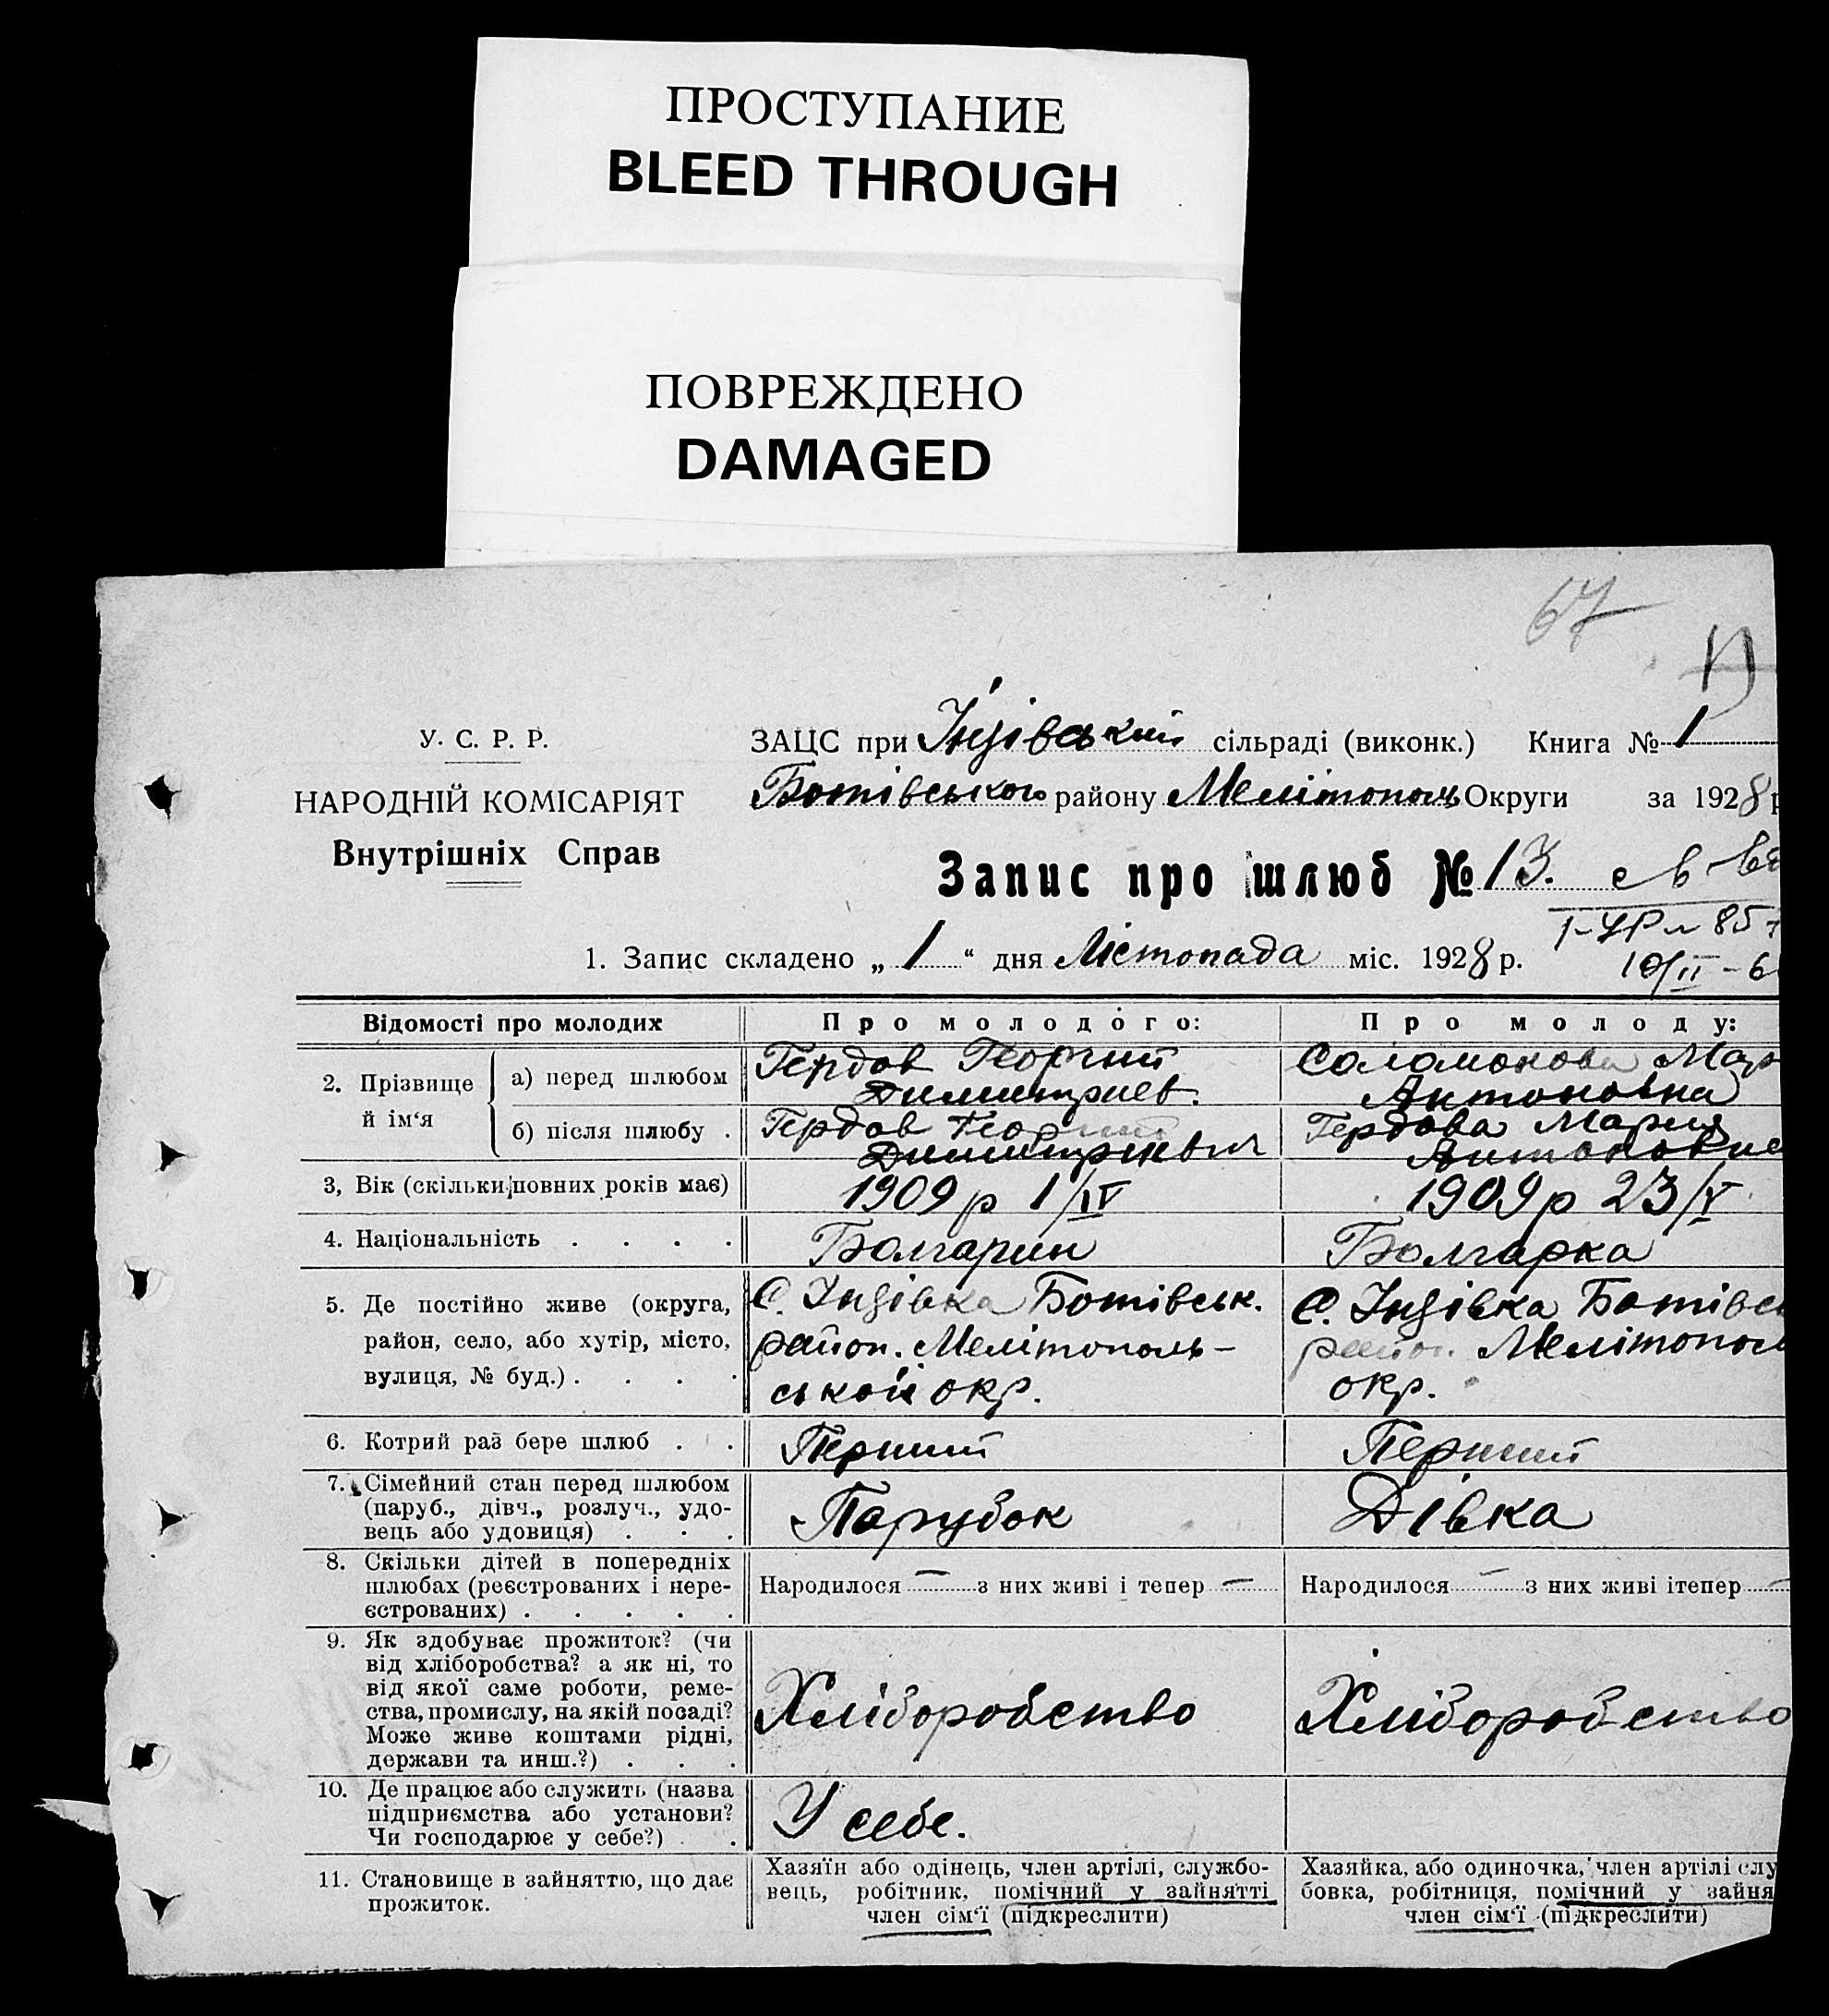 ПРОСТУПАНИЕ
BLEED THROUGH
ПОВРЕЖДЕНО
DAMAGED
67
У. С. Р. Р.
НАРОДНІЙ КОМІСАРІЯТ
Внутрішніх Справ
ЗАЦС при Інзівській сільраді (виконк.) Книга № 1
Ботівського району Мелітополь Округи за 1928 р
Запис про шлюб № 13.
1. Запис складено „ 1 “ дня Лістопада міс. 1928 р.
10/II - 6
Відомості про молодих Про молодого: Про молоду:
2. Прізвище й ім‘я
а) перед шлюбом Гердов Георгий Димитриев. Соломонова Мар Антоновна
б) після шлюбу . Гердов Георгий Димитриевич Гердова Мария Антоновне
3, Вік (скільки повних років має) 1909 р 1/IV 1909 р 23/V
4. Національність . . . . Болгарин Болгарка
5. Де постійно живе (округа,
район, село, або хутір, місто,
вулиця, № буд.) . . . .
С. Інзівка Ботівськ.
район. Мелітополь-
ської окр.
С. Інзівка Ботівсь
район. Мелітопол
окр.
6. Котрий раз бере шлюб . . Перший Перший
7. Сімейний стан перед шлюбом
(паруб., дівч., розлуч., удо-
вець або удовиця) . . .
Парубок Дівка
8. Скільки дітей в попередніх
шлюбах (реєстрованих і нере-
єстрованих) . . . . .
Народилося — з них живі і тепер — Народилося — з них живі ітепер —
9. Як здобуває прожиток? (чи
від хліборобства? а як ні, то
від якої саме роботи, реме-
ства, промислу, на якій посаді?
Може живе коштами рідні,
держави та инш.?) . . .
Хліборобство Хліборобство
10. Де працює або служить (назва
підприємства або установи?
Чи господарює у себе?) . .
У себе.
11. Становище в зайняттю, що дає
прожиток.
Хазяїн або одінець, член артілі, службо-
вець, робітник, помічний у зайнятті
член сім‘ї (підкреслити)
Хазяйка, або одиночка, член артілі слу
бовка, робітниця, помічний у зайня
член сім‘ї (підкреслити)